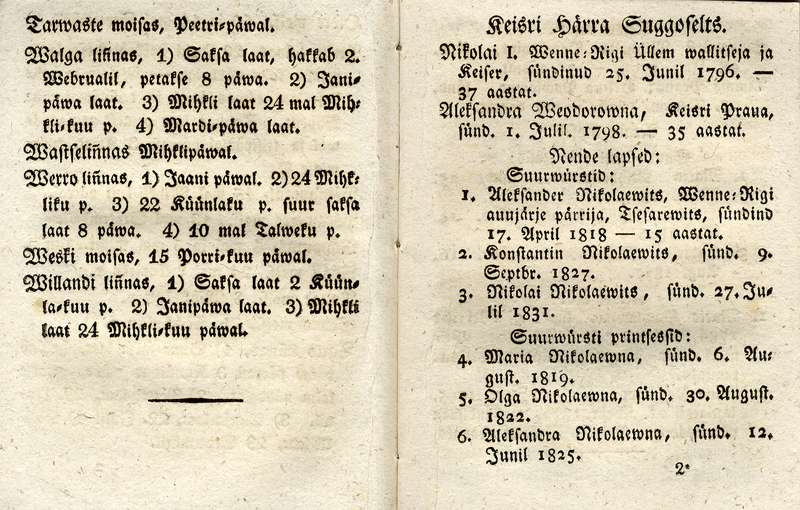 Tarwaste moisas, Peetri-päwal.
Walga liñnas, 1) Saksa laat, hakkab 2.
Webrualil, petakse 8 päwa. 2) Jani-
päwa laat. 3) Mihkli laat 24 mal Mih-
kli-kuu p. 4) Mardi-päwa laat.
Wastseliñnas Mihklipäwal.
Werro liñnas, 1) Jaani päwal. 2) 24 Mihk-
liku p. 3) 22 Küünlaku p. suur saksa
laat 8 päwa. 4) 10 mal Talweku p.
Weski moisas, 15 Porri-kuu päwal.
Willandi liñnas, 1) Saksa laat 2 Küün-
la-kuu p. 2) Janipäwa laat. 3) Mihkli
laat 24 Mihkli-kuu päwal.
Keisri Härra Suggoselts.
Nikolai I. Wenne-Rigi Üllem wallitseja ja
Keiser, sündinud 25. Junil 1796. —
37 aastat.
Aleksandra Weodorowna, Keisri Praua,
sünd. 1. Julil. 1798. — 35 aastat.
Nende lapsed:
Suurwürstid:
1. Aleksander Nikolaewits, Wenne-Rigi
auujärje pärrija, Tsesarewits, sündind
17. April 1818 — 15 aastat.
2. Konstantin Nikolaewits, sünd. 9.
Septbr. 1827.
3. Nikolai Nikolaewits, sünd. 27. Ju-
lil 1831.
Suurwürsti printsessid:
4. Maria Nikolaewna, sünd. 6. Au-
gust. 1819.
5. Olga Nikolaewna, sünd. 30. August.
1822.
6. Aleksandra Nikolaewna, sünd. 12.
Junil 1825.
2*